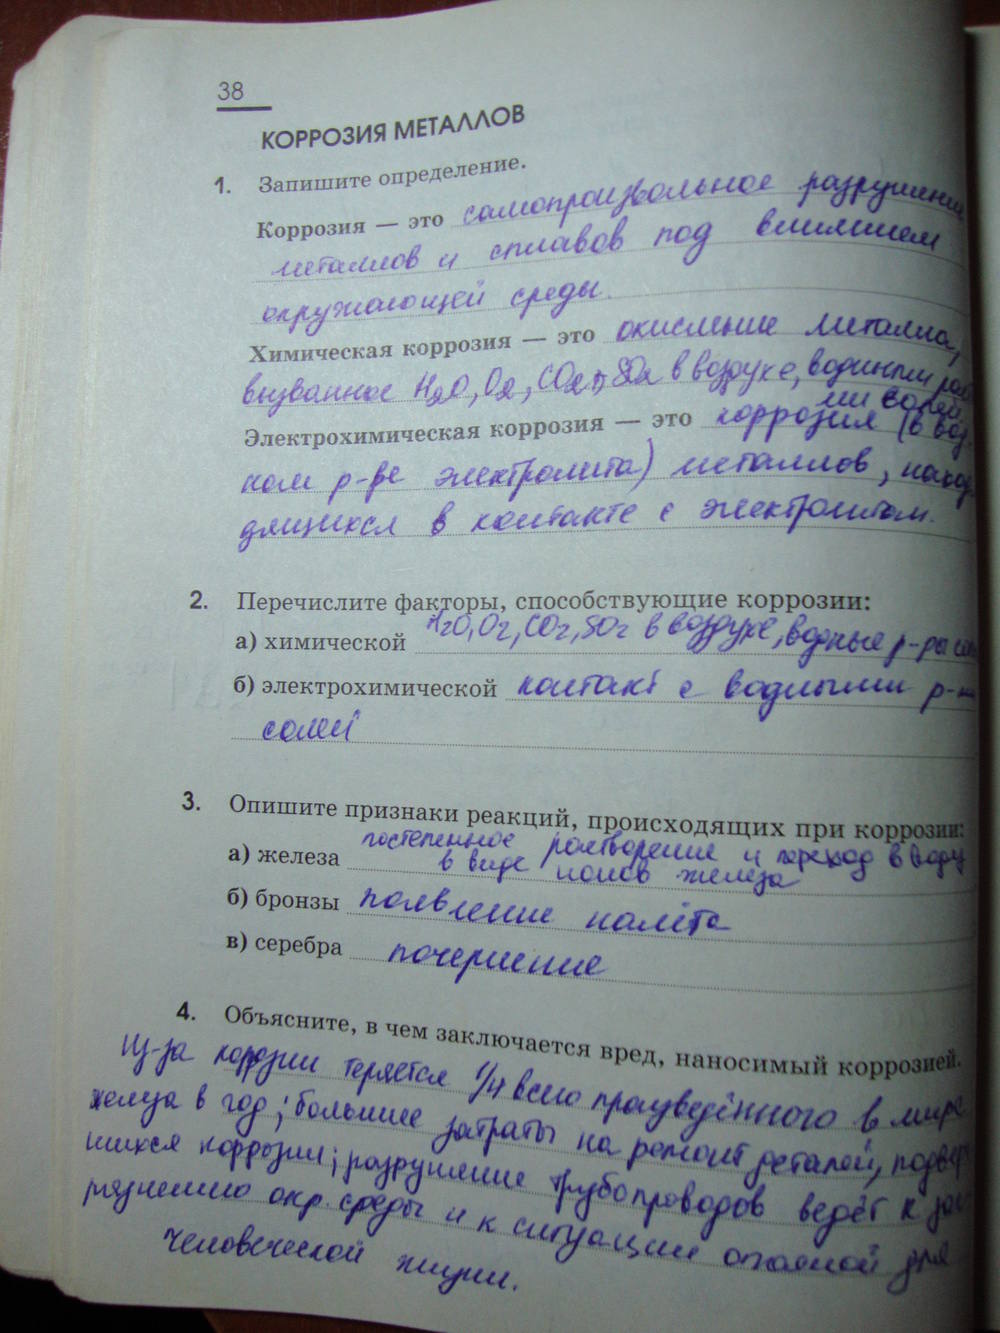 38
КОРРОЗИЯ МЕТАЛЛОВ
1. Запишите определение.
Коррозия — это самопроизвольное разрушение
металлов и сплавов под влиянием
окружающей среды.
Химическая коррозия — это окисление металла,
вызванное H2O, O2, CO2, SO2 в воздухе, водными раст
ми солей
Электрохимическая коррозия — это коррозия (в вод-
ном р-ре электролита) металлов, наход
дящихся в контакте с электролитом.
2. Перечислите факторы, способствующие коррозии:
а) химической H2O, O2, CO2, SO2 в воздухе, водные р-ры сол
б) электрохимической контакт с водными р-ми
солей
3. Опишите признаки реакций, происходящих при коррозии:
а) железа постепенное растворение и переход в воду
в виде ионов железа
б) бронзы появление налёта
в) серебра почернение
4. Объясните, в чем заключается вред, наносимый коррозией.
Из-за коррозии теряется 1/4 всего произведённого в мире
железа в год; большие затраты на ремонт деталей, подверг
шихся коррозии; разрушение трубопроводов ведёт к заг-
рязнению окр. среды и к ситуации опасной для
человеческой жизни.